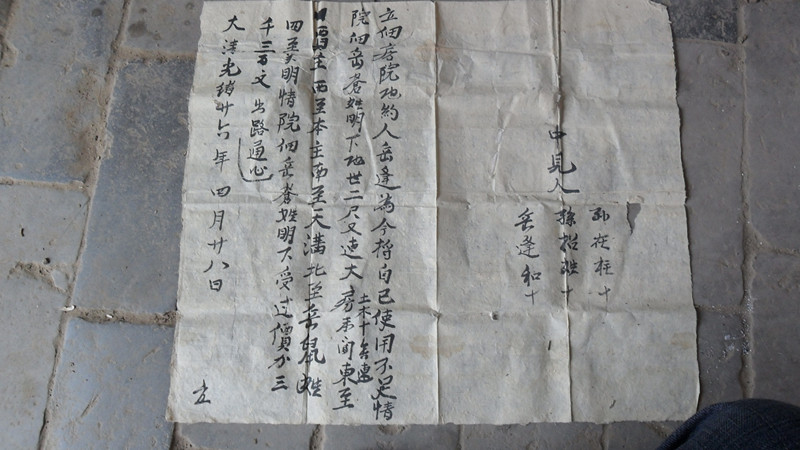 立佃房院地約人岳逢為今将自己使用不足情
院佃岳蒼姓明下地廿二尺又連大房禾间東至
土木十
主西至本主南至天溝北至岳鼠姓
四至災明情院佃岳蒼姓明下受过價才三
千三百文出路通心
大清光緒廿六年四月廿八日
立
中見人
在柱十
孫招姓十
岳逢和十